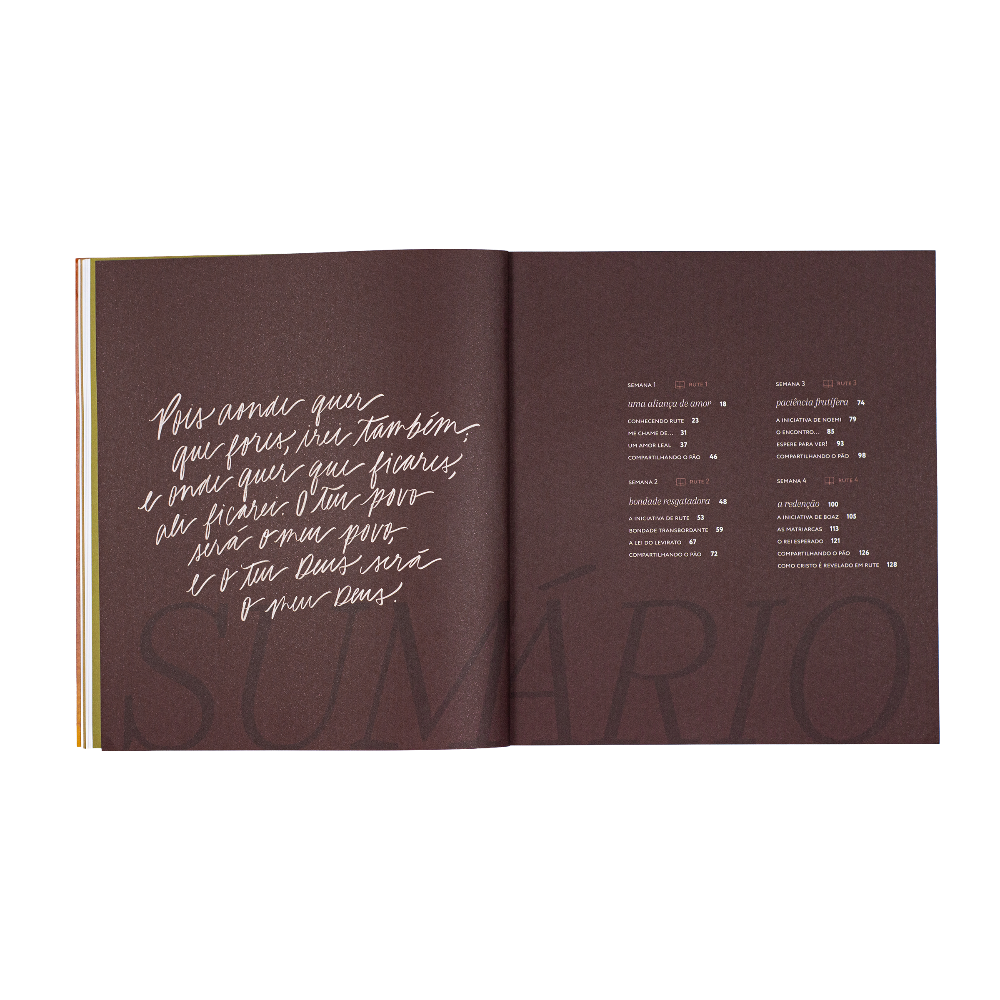 Pois aonde quer
que fores, irei também;
e onde quer que ficares,
ali ficarei. O teu povo
será o meu povo,
e o teu Deus será
o meu Deus.
SUMÁRIO
SEMANA 1 RUTE 1
uma aliança de amor 18
CONHECENDO RUTE 23
ME CHAME DE... 31
UM AMOR LEAL 37
COMPARTILHANDO O PÃO 46
SEMANA 2 RUTE 2
bondade resgatadora 48
A INICIATIVA DE RUTE 53
BONDADE TRANSBORDANTE 59
A LEI DO LEVIRATO 67
COMPARTILHANDO O PÃO 72
SEMANA 3 RUTE 3
paciência frutífera 74
A INICIATIVA DE NOEMI 79
O ENCONTRO... 85
ESPERE PARA VER! 93
COMPARTILHANDO O PÃO 98
SEMANA 4 RUTE 4
a redenção 100
A INICIATIVA DE BOAZ 105
AS MATRIARCAS 113
O REI ESPERADO 121
COMPARTILHANDO O PÃO 126
COMO CRISTO É REVELADO EM RUTE 128